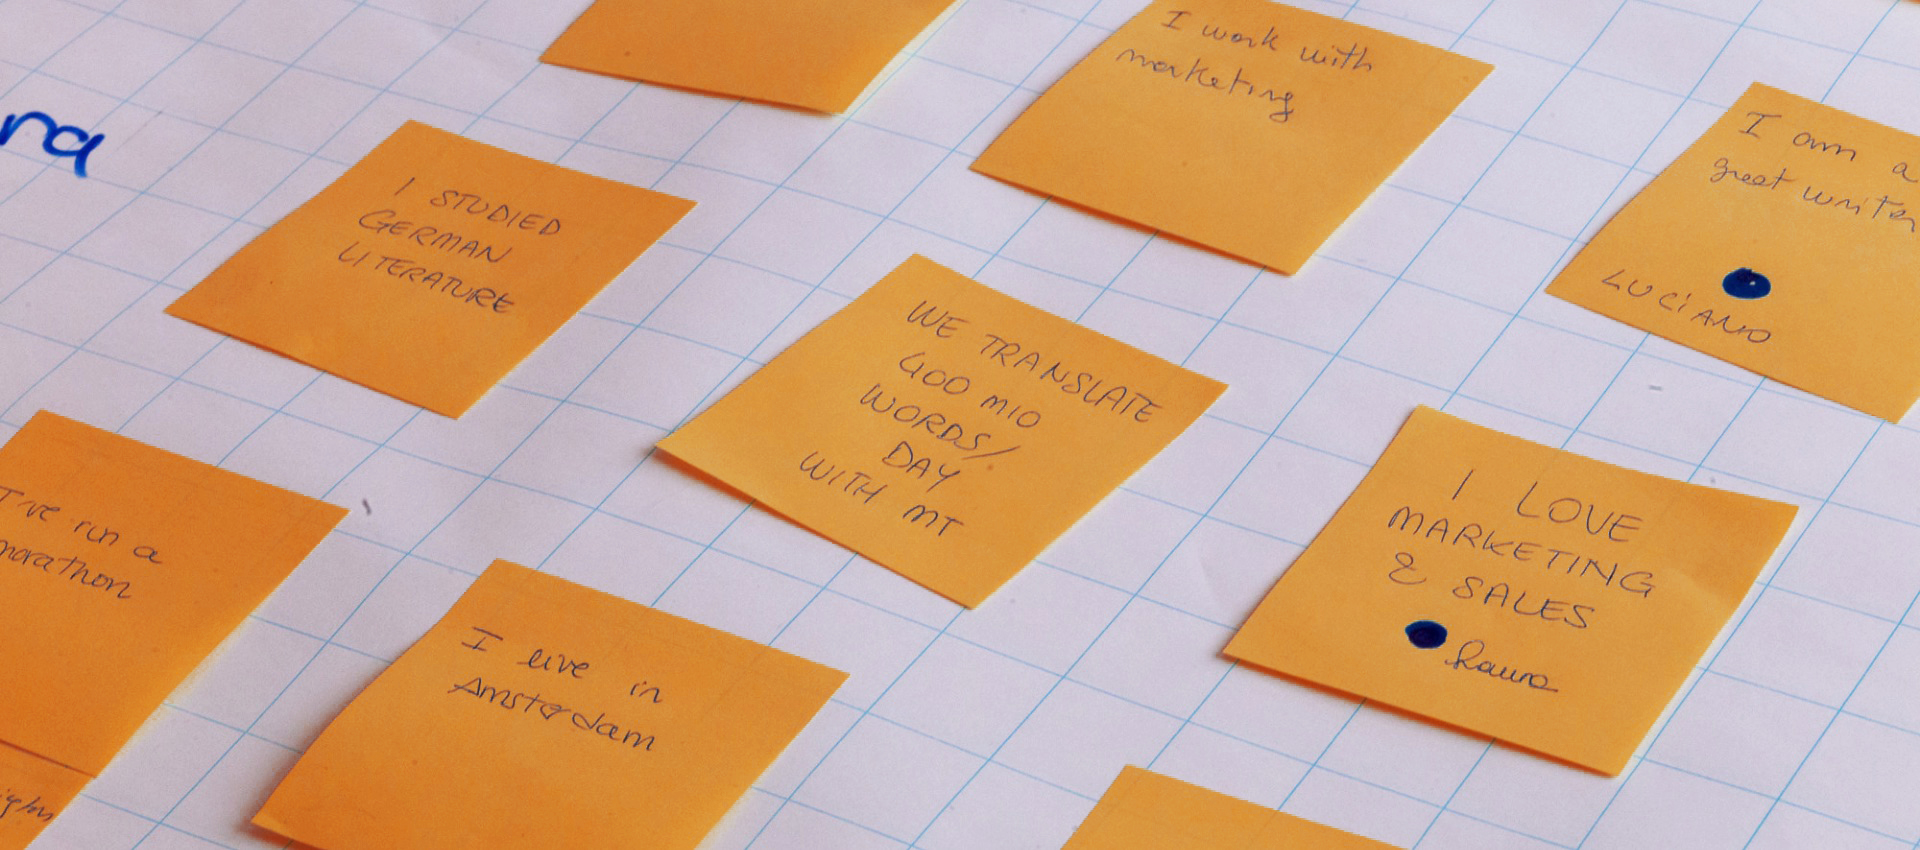 I work with
marketing
I am a
great writer
LUCIANO
ra
I STUDIED
GERMAN
LITERATURE
WE TRANSLATE
400 MIO
WORDS/
DAY
WITH MT
I LOVE
MARKETING
& SALES
Laura
I've run a
marathon
I live in
Amsterdam